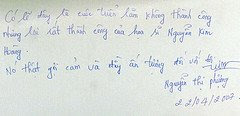 Có lẽ đây là cuộc triển lãm không thành công
nhưng lại rất thành công của họa sĩ Nguyễn Kim
Hoàng.
Nó thật gợi cảm và đầy ấn tượng đối với
Nguyễn Thị Phương
22/04/2007